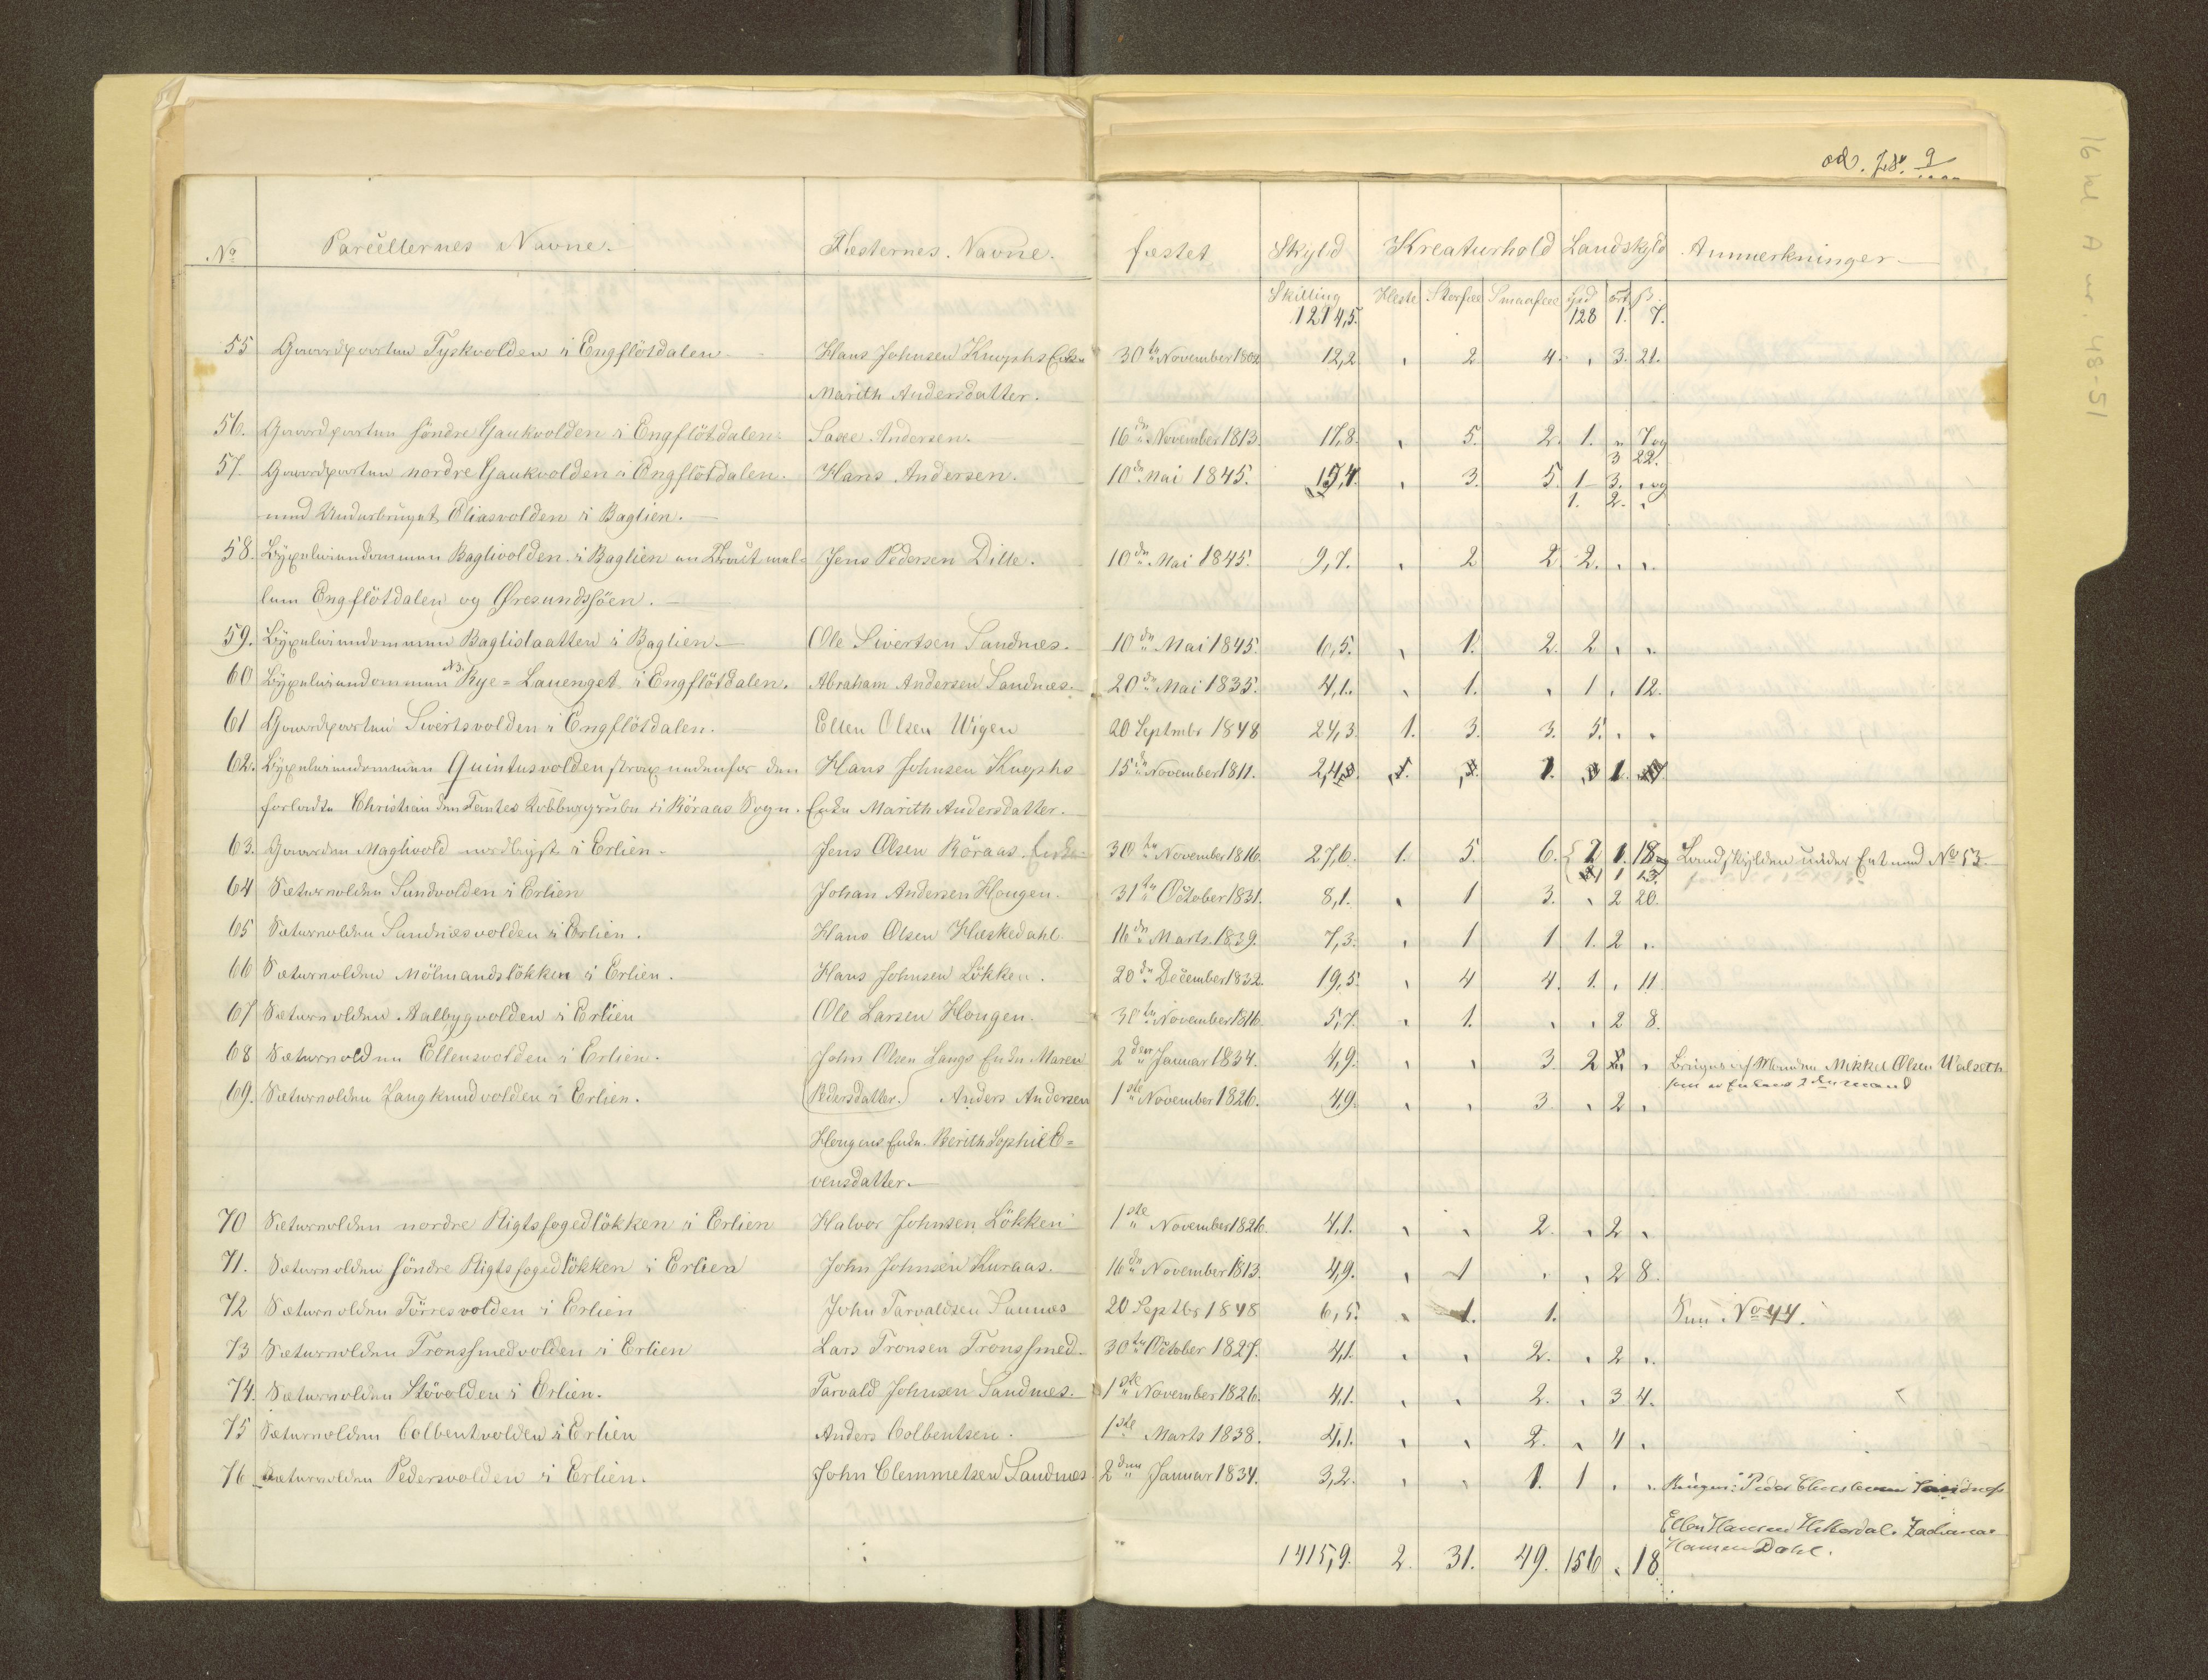 ad. Jrs. 9
16 kl A nr. 48-51
No Parcellernes Navne. Fæsternes Navne. fæstet Skyld Kreaturhold Landskyld Anmerkninger
Skilling Heste Storfee Smaafee Spd ort ß.
1214,5. 128 1. 7.
55 Gaardparten Tyskvolden i Engflötdalen Hans Johnsen Knophs Enke 30te November 1802 12,2 " 2 4. " 3. 21.
Marith Andersdatter.
56. Gaardparten söndre Gjaukvolden i Engflötdalen. Lasse Andersen. 16de November 1813. 17,8. " 5. 2. 1. " 7 og
3 22.
57. Gaardparten nordre Gjaukvolden i Engflötdalen. Hans Andersen. 10de Mai 1845. 15,4. " 3. 5. 1 3. " og
med Underbruget Eliasvolden i Baglien. 1. 2. "
58. Bÿxeleiendommen Baglivolden i Baglien en Tract mel= Jens Pedersen Dille. 10de Mai 1845. 9,7. " 2 2 2. " "
lem Engflötdalen og Øresundssöen.
59. Bÿxeleiendommen Baglislaatten i Baglien. Ole Sivertsen Sandnæs. 10de Mai 1845. 6,5. " 1. 2. 2. " "
60 Bÿxeleiendommen NB. Rye=Lauenget i Engflötdalen. Abraham Andersen Sandnæs. 20de Mai 1835. 4,1. " 1. " 1 " 12.
61 Gaardparten Sivertsvolden i Engflötdalen. Ellen Olsen Wigen 20 Septmbr 1848 24,3. 1. 3. 3. 5. " "
62. Bÿxeleiendommen Quintusvolden strax nedenfor den Hans Johnsen Knophs 15de November 1811. 2,4 1. 1.
forladte Christian den Femtes Kobbergrube i Röraas Sogn. Enke Marith Andersdatter.
63. Gaarden Maglivold nordligst i Erlien. Jens Olsen Röraas Enke 30te November 1816. 27,6. 1. 5. 6. 2 1. 18 og Landskylden under Eet med No 53
1 13.
64 Sætervolden Sundvolden i Erlien Johan Andersen Hougen. 31te October 1831. 8,1. " 1 3. " 2 20.
65 Sætervolden Sundnæsvolden i Erlien. Hans Olsen Hæskedahl 16de Marts 1839. 7,3. " 1 1 1. 2 "
66 Sætervolden Mölmandslökken i Erlien. Hans Johnsen Lökken. 20de December 1832. 19,5. " 4 4. 1. " 11
67 Sætervolden Aalbygvolden i Erlien Ole Larsen Hougen. 30te November 1816. 5,7. " 1. " " 2 8.
68 Sætervolden Ellensvolden i Erlien. John Olsen Langs Enke Maren 2den Januar 1834. 4,9. " " 3. 2 " Bruges af Manden Mikkel Olsen Walseth
som er Enkens 2den mand
69. Sætervolden Langknudvolden i Erlien. Pedersdatter. Anders Andersen 1ste November 1826. 4,9. " " 3 " 2 "
Hougens Enke Berith Sophie E=
vensdatter.
70 Sætervolden nordre Rigtsfogedlökken i Erlien Halvor Johnsen Lökken 1ste November 1826. 4,1. " " 2. " 2 "
71. Sætervolden söndre Rigtsfogedlökken i Erlien John Johnsen Kuraas. 16de November 1813. 4,9. " 1 " " 2 8.
72 Sætervolden Törresvolden i Erlien John Tarvaldsen Sunnæs 20 Septbr 1848 6,5. " 1. 1. See No 44.
73 Sætervolden Tronssmedvolden i Erlien Lars Tronsen Tronssmed. 30te October 1827. 4,1. " " 2. " 2 "
74. Sætervolden Stövolden i Erlien. Tarvald Johnsen Sandnæs. 1ste November 1826. 4,1. " " 2. " 3 4.
75 Sætervolden Colbentvolden i Erlien Anders Colbentsen. 1ste Marts 1838. 4,1. " " 2. " 4 "
76 Sætervolden Pedersvolden i Erlien. John Clemmetsen Sandnæs 2den Januar 1834. 3,2. " " 1. 1 " " Bruges: Peder Sandnæs
Ellen Hansen Zacharias
1415,9. 2. 31. 49. 156 " 18. Hansen Dahl.